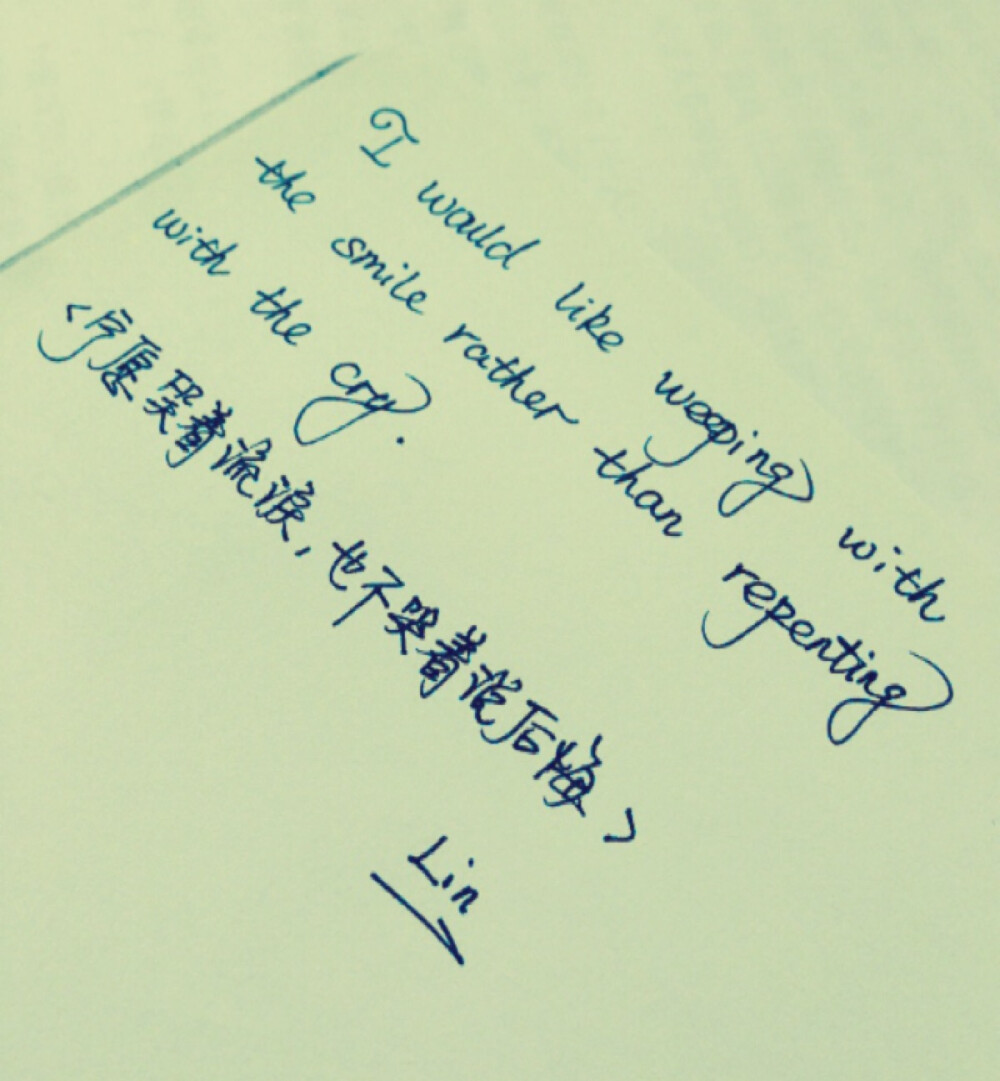 I would like weeping with
the smile rather than repenting
with the cry.
<宁愿哭着流淚，也不哭着说后悔>
Lin